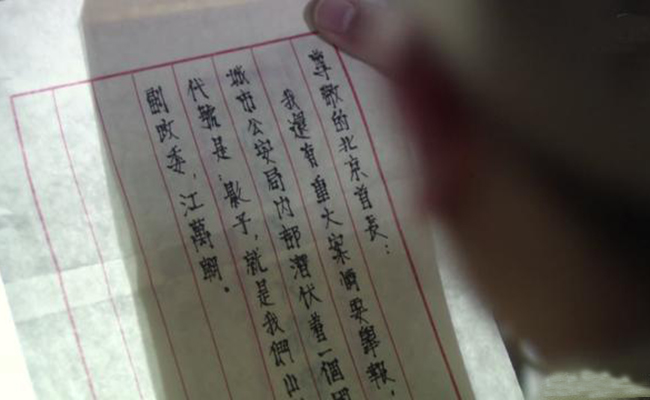 尊敬的北京首長：
我還有重大案情要舉報，
城市公安局內部潛伏着一個國
代號是：影子，就是我們山
副政委，江萬朝。